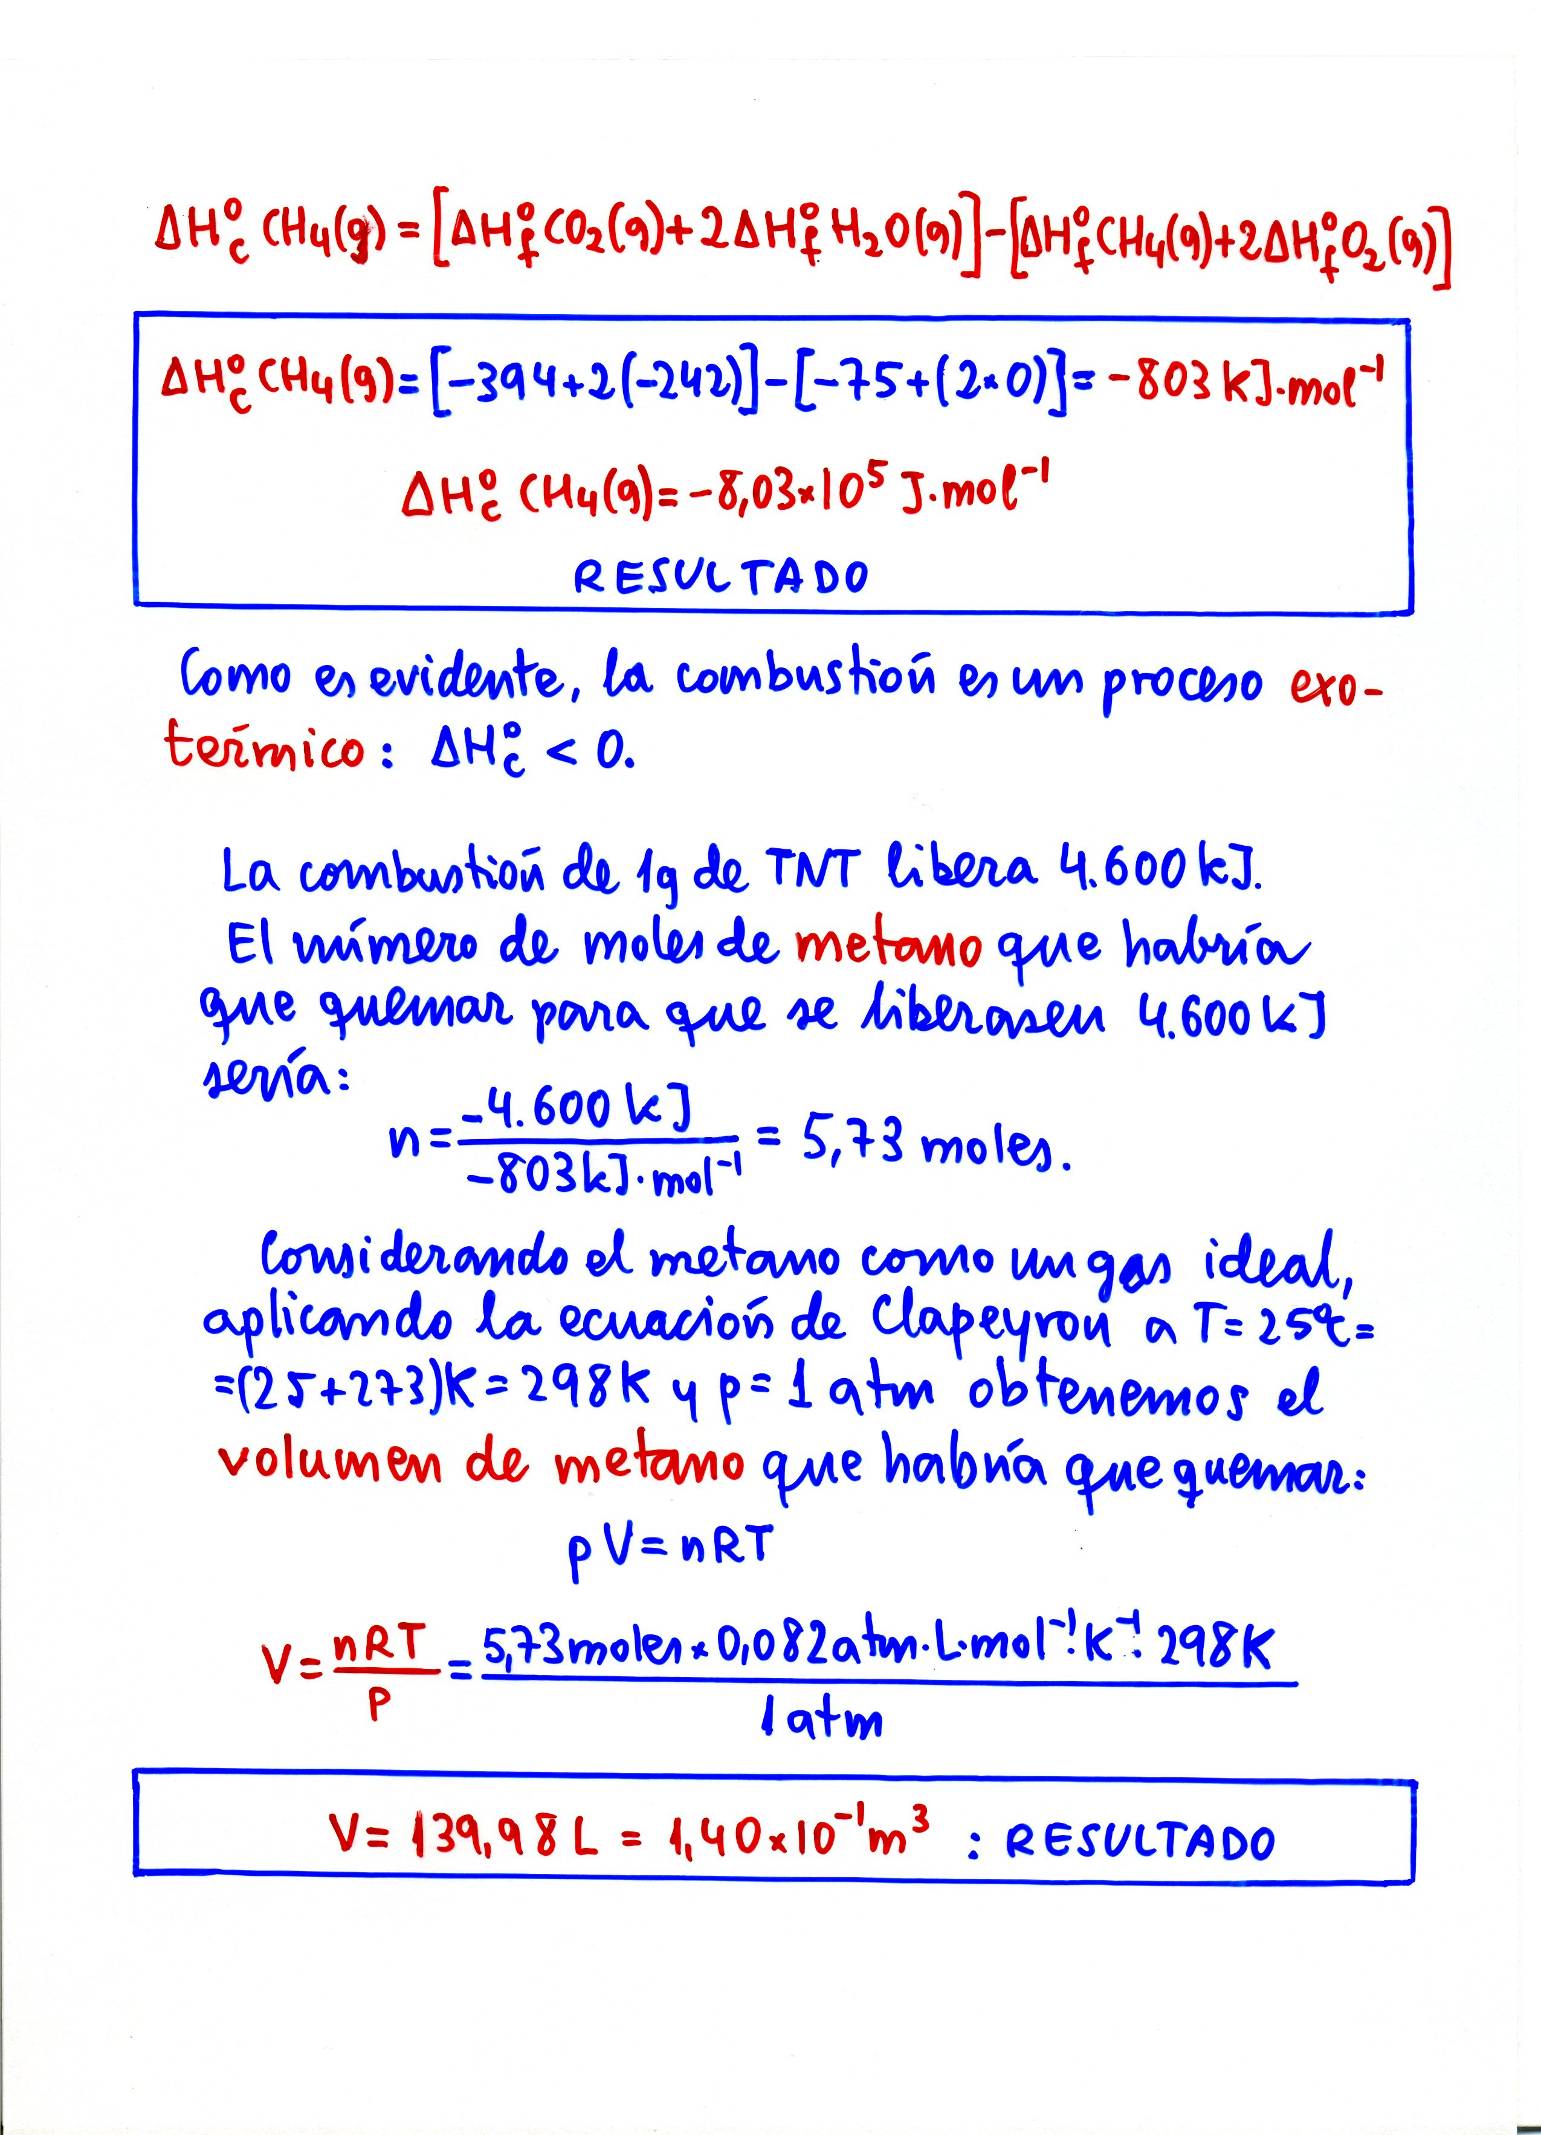 ΔH°c CH4(g) = [ΔH°f CO2(g) + 2ΔH°f H2O(g)] - [ΔH°f CH4(g) + 2ΔH°f O2(g)]
ΔH°c CH4(g) = [-394 + 2(-242)] - [-75 + (2×0)] = -803 kJ·mol⁻¹
ΔH°c CH4(g) = -8,03×10⁵ J·mol⁻¹
RESULTADO
Como es evidente, la combustión es un proceso exo-
térmico: ΔH°c < 0.
La combustión de 1g de TNT libera 4.600 kJ.
El número de moles de metano que habría
que quemar para que se liberasen 4.600 kJ
sería:
n = -4.600 kJ / -803 kJ·mol⁻¹ = 5,73 moles.
Considerando el metano como un gas ideal,
aplicando la ecuación de Clapeyron a T = 25℃ =
= (25+273)K = 298K y p = 1 atm obtenemos el
volumen de metano que habría que quemar:
pV = nRT
V = nRT / P = 5,73 moles × 0,082 atm·L·mol⁻¹·K⁻¹·298K / 1 atm
V = 139,98 L = 1,40×10⁻¹ m³ : RESULTADO